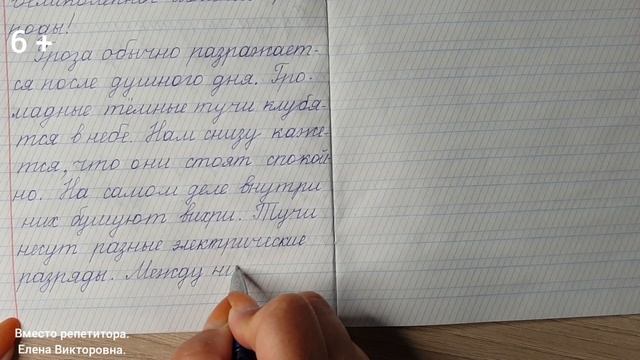 роды!
6 +
Гроза обычно разражает-
ся после душного дня. Гро-
мадные тёмные тучи клубя-
тся в небе. Нам снизу каже-
тся, что они стоят спокой-
но. На самом деле внутри
них бушуют вихри. Тучи
несут разные электрические
разряды. Между ни
Вместо репетитора.
Елена Викторовна.